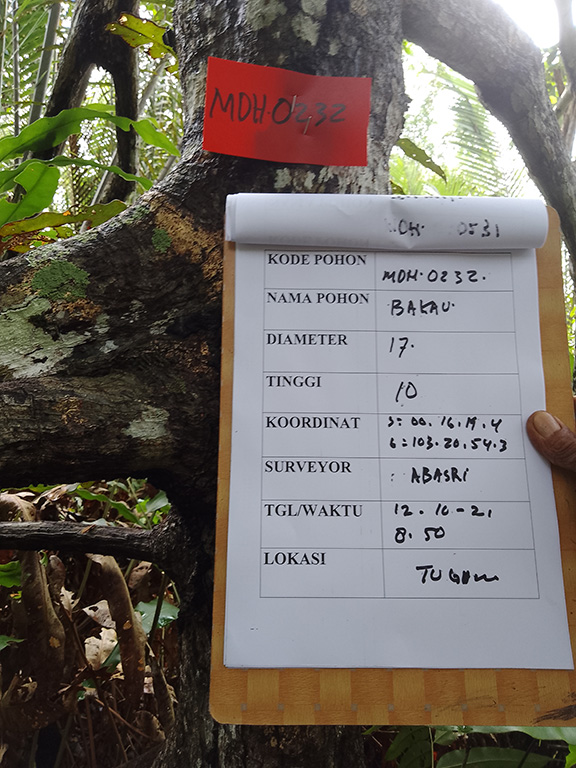 MDH.0232
CH. 0531
KODE POHON MDH.0232.
NAMA POHON BAKAU.
DIAMETER 17.
TINGGI 10
KOORDINAT S=00.16.19.4
E=103.20.54.3
SURVEYOR : ABASRI
TGL/WAKTU 12.10-21,
8.50
LOKASI